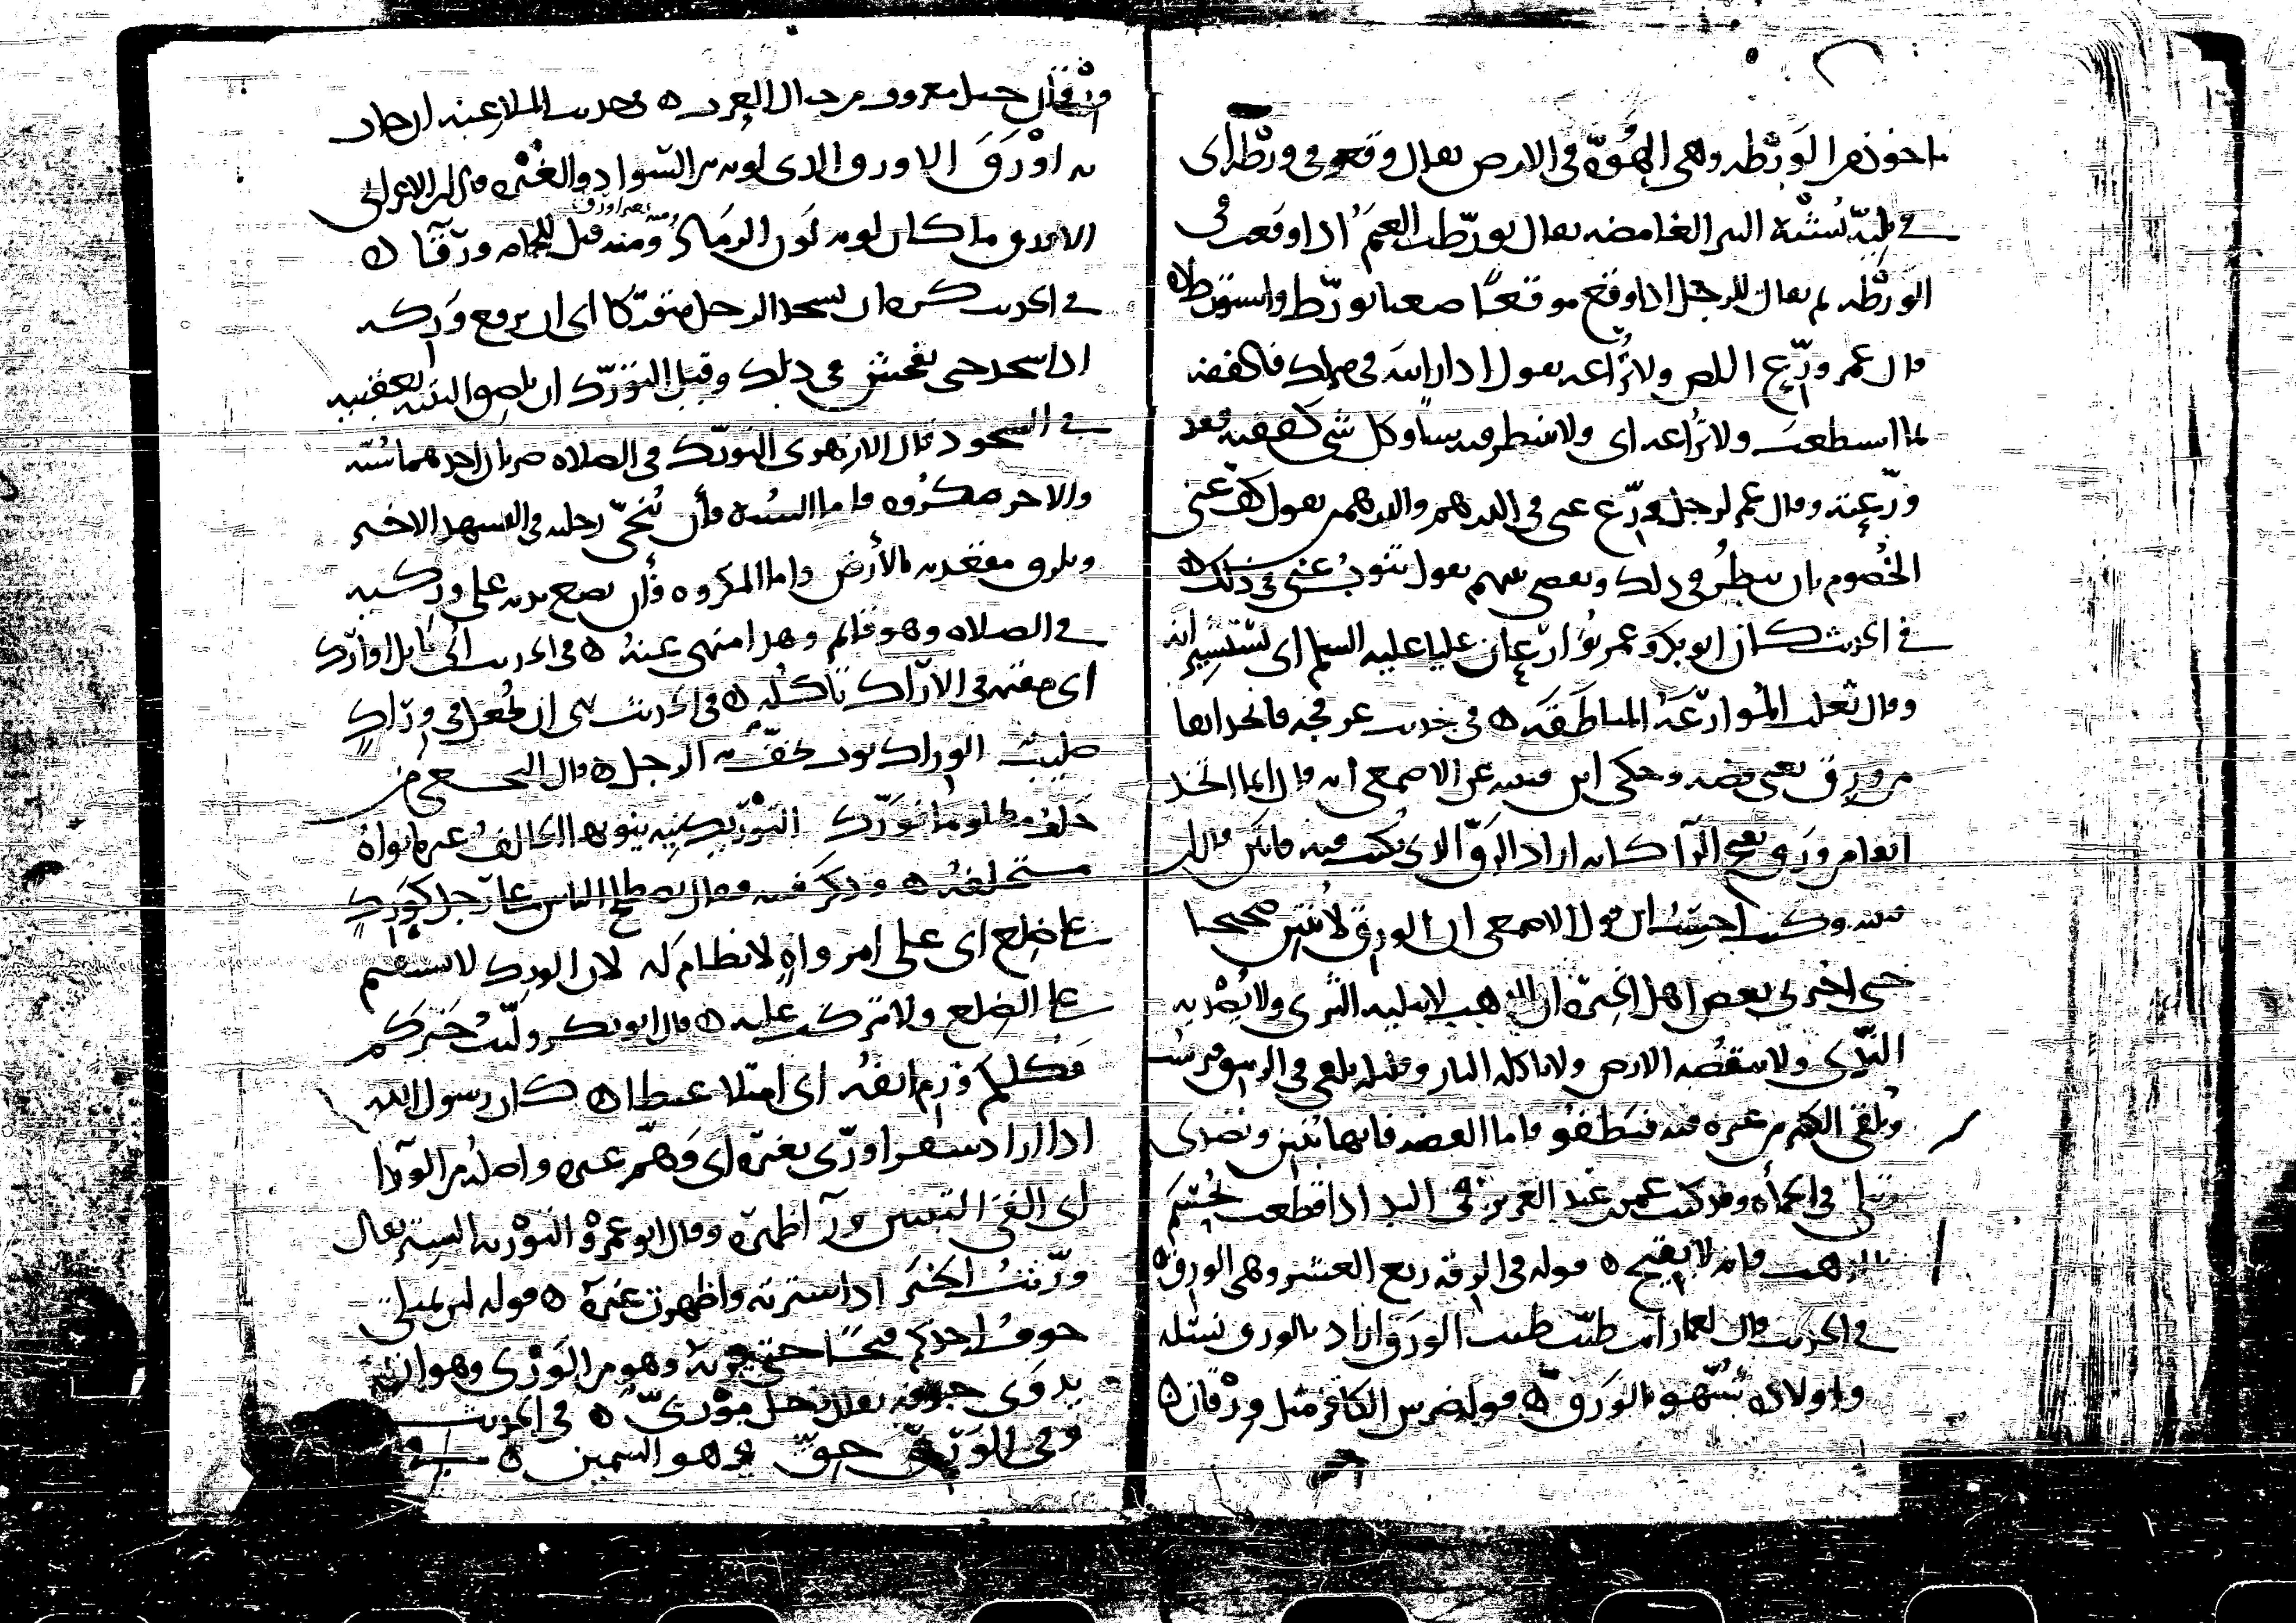 ماخوذ من الورطه وهي الهوة في الارض يقال وقعو في ورطة أي
في بلية تشبه البير الغامضه يقال تورطت الغنم اذا وقعت في
الورطه ثم يقال للرجل اذا وقع موقعا صعبا تورط واستورط ه
قال عمر ورع اللص ولا تراعه يقول اذا رايته في منزلك فاكففه
بما استطعت ولا تراعه اي ولا تنتظر فيه شيا وكل شي كففته فقد
ورعته وقال عمر لرجل ورع عني في الدرهم والدرهمين يقول كف عني
الخصوم بان تنظر في ذلك وبعضي بينهم يقول تنوب عني في ذلك ه
في الحديث كان ابو بكر وعمر يوارعان عليا عليه السلم اي يستشيرانه
وقال ثعلب الموارعة المناطقه ه في حديث عرفجه فاتخذ انفا
من ورق يعني فضه وحكى ابن قتيبه عن الاصمعي انه قال انما اتخذ
انفا من ورق بفتح الرآ كانه اراد الرق الذي يكتب فيه فانتن قال ابن
قتيبه وكنت احسب ان قول الاصمعي ان الورق لا ينتن صحيحا
حتى اخبرني بعض اهل الخبرة ان الذهب لا يبليه الثرى ولا يصديه
الندى ولا تنقصه الارض ولا تاكله النار وقليله يلقى في الزيبق فيرسب
ويلقى الكثير من غيره فيه فيطفو فاما الفضه فانها تنتن وتصدى
وتبلى في الحمأة وقد كتب عمر بن عبد العزيز في اليد اذا قطعت تحسم
بالذهب فانه لا يقيح ه قوله في الرقه ربع العشر وهي الورق ه
في الحديث قال لعمار انت طيب طيب الورق اراد بالورق نسله
واولاده شبهو بالورق ه قوله ضرس الكافر مثل ورقان ه
ورقان جبل معروف من جبال العرب ه في حديث الملاعنه ان جات
به اورق الاورق الذي لونه بين السواد والغبرة قال ابن الاعرابي
الاورق ما كان لونه لون الرماد ومنه قيل للحمامه ورقآ ه
في الحديث كره ان يسجد الرجل متوركا اي ان يرفع وركه
اذا سجد حتى يفحش في ذلك وقيل التورك ان يلصق اليتيه بعقبيه
في السجود قال الازهري التورك في الصلاة ضربان احدهما سنه
والاخر مكروه فاما السنه فأن ينحي رجليه في التشهد الاخير
ويلزق مقعدته بالأرض واما المكروه فأن يضع يديه على وركيه
في الصلاه وهو قائم وهذا منهي عنه ه في الحديث
اي مقيمة في الاراك تاكله ه في الحديث نهى ان يجعل في وراك
صليب الوراك ثوب يحف به الرحل ه قال النخعي من
حلف مظلوما فورك التوريك نيه ينويها الحالف غير ما نواه
مستحلفه ه وذكر فتنه فقال يصطلح الناس على رجل كورك
على ضلع اي على امر واه لا نظام له لان الورك لا يستقيم
على الضلع ولا تتركب عليه ه قال ابو بكر وليت خيركم
فكلكم ورم انفه اي امتلا غيظا ه كان رسول الله
اذا اراد سفرا ورى بغيره اي وهم غيره واصله من الورآ
اي القى التبيين ورآ ظهره وقال ابو عمرو التوريه الستر يقال
وريت الخبر اذا سترته واظهرت غيره ه قوله لان يمتلي
جوف احدكم قيحا حتى يريه وهو من الوري وهو ان
يدوى جوفه يقال رجل موري ه في الحديث
وفي الوري حق وهو السمين ه